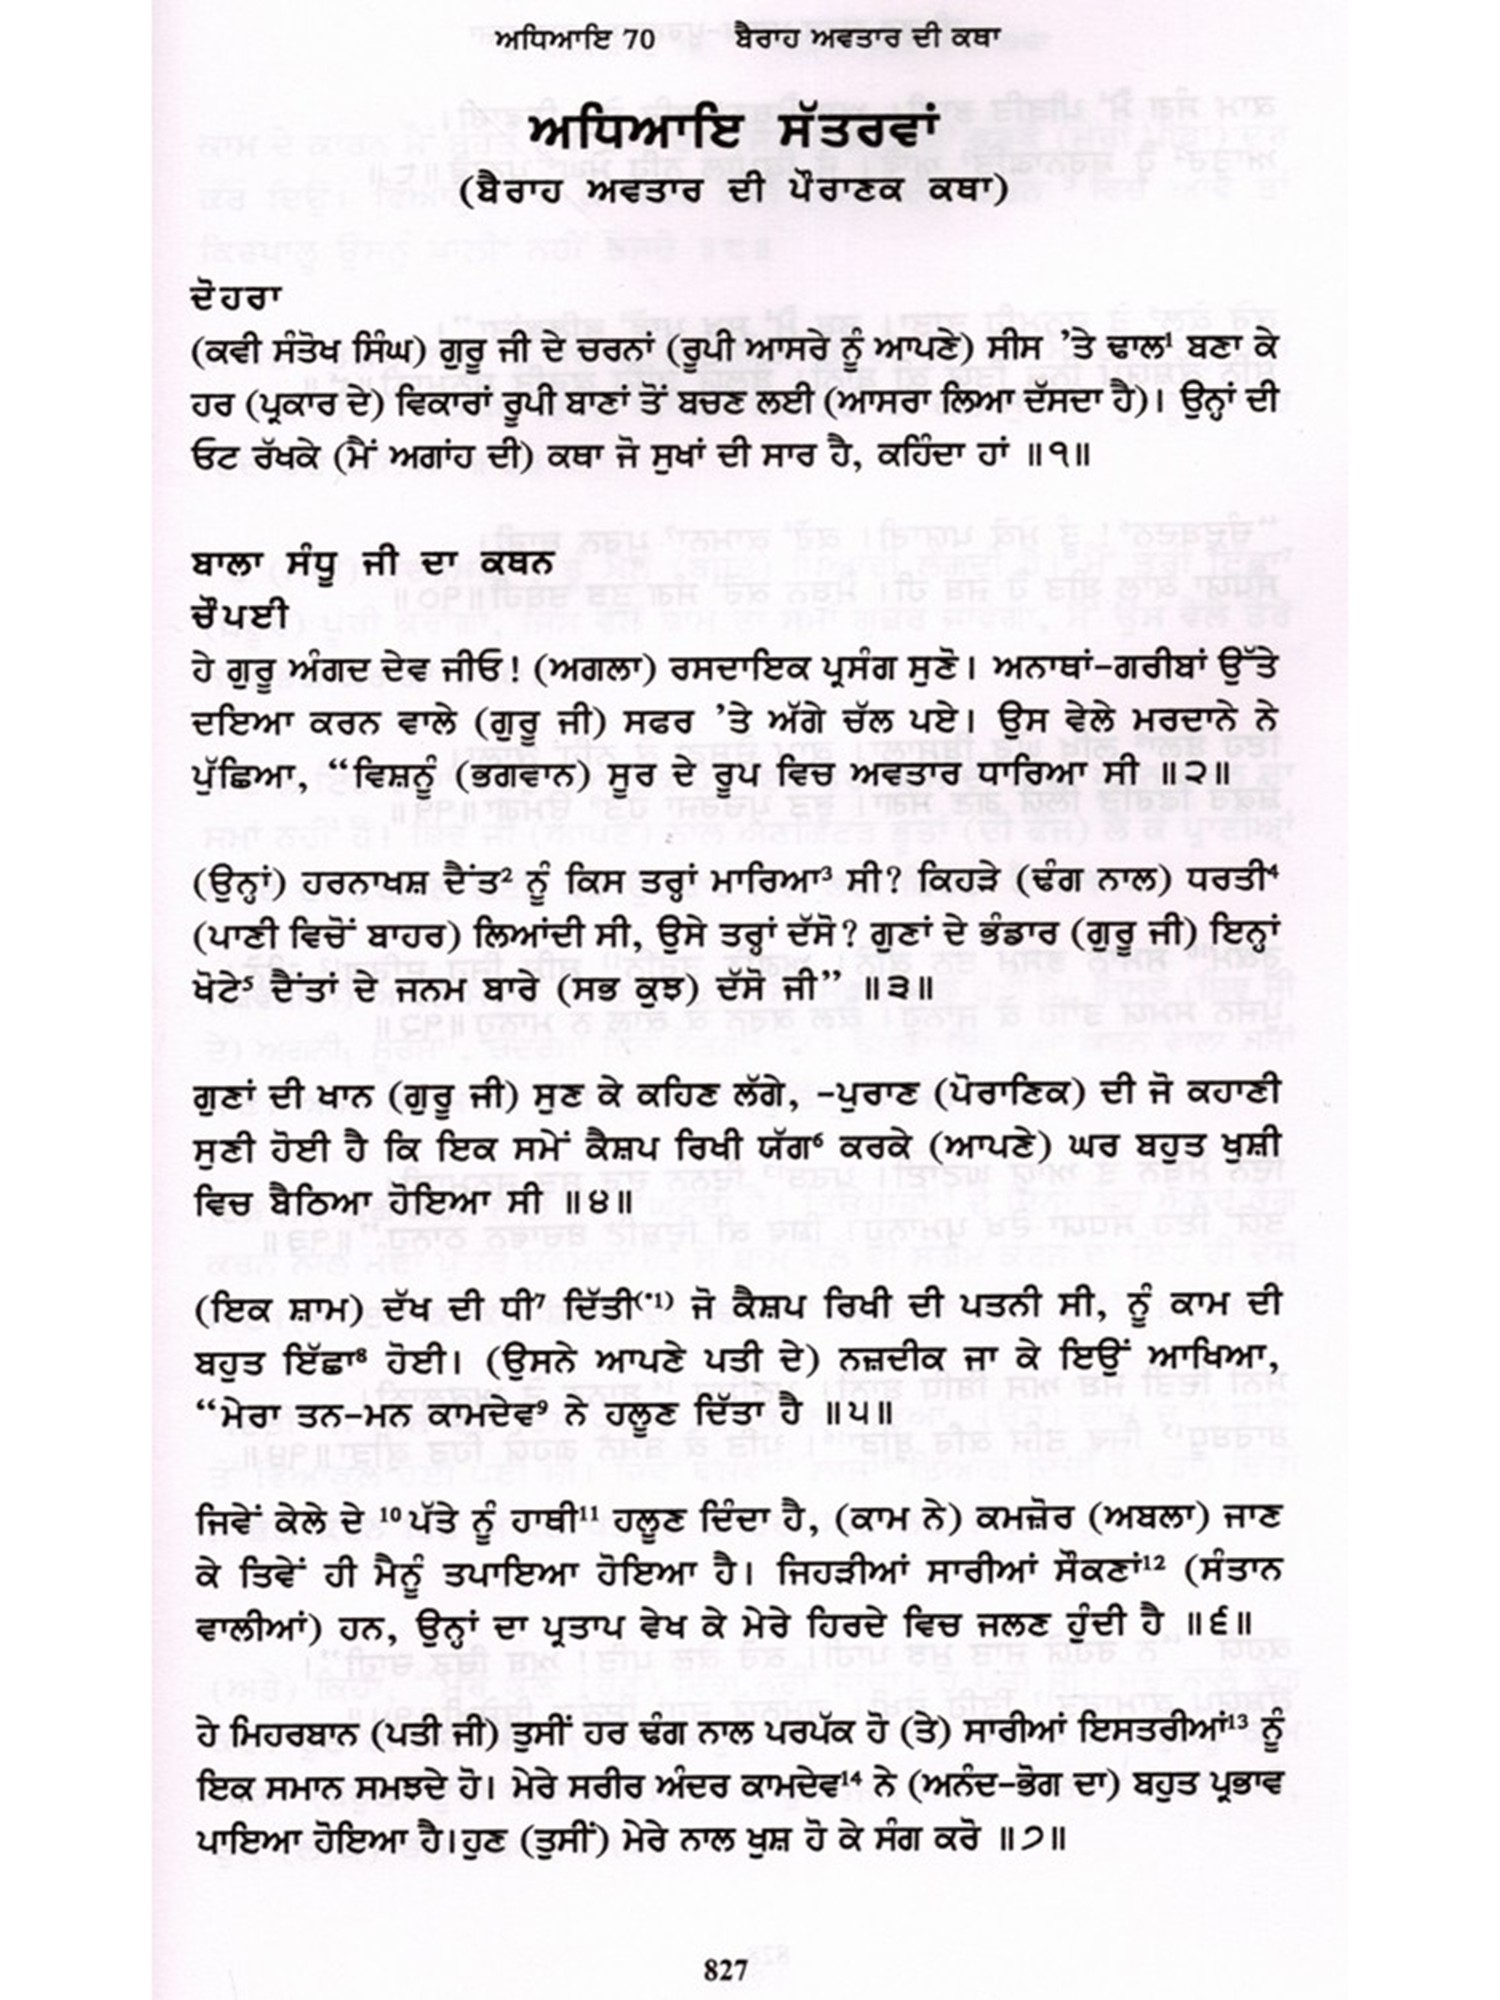 ਅਧਿਆਇ 70 ਬੈਰਾਹ ਅਵਤਾਰ ਦੀ ਕਥਾ
ਅਧਿਆਇ ਸੱਤਰਵਾਂ
(ਬੈਰਾਹ ਅਵਤਾਰ ਦੀ ਪੌਰਾਣਕ ਕਥਾ)
ਦੋਹਰਾ
(ਕਵੀ ਸੰਤੋਖ ਸਿੰਘ) ਗੁਰੂ ਜੀ ਦੇ ਚਰਨਾਂ (ਰੂਪੀ ਆਸਰੇ ਨੂੰ ਆਪਣੇ) ਸੀਸ ’ਤੇ ਢਾਲ¹ ਬਣਾ ਕੇ
ਹਰ (ਪ੍ਰਕਾਰ ਦੇ) ਵਿਕਾਰਾਂ ਰੂਪੀ ਬਾਣਾਂ ਤੋਂ ਬਚਣ ਲਈ (ਆਸਰਾ ਲਿਆ ਦੱਸਦਾ ਹੈ)। ਉਨ੍ਹਾਂ ਦੀ
ਓਟ ਰੱਖਕੇ (ਮੈਂ ਅਗਾਂਹ ਦੀ) ਕਥਾ ਜੋ ਸੁਖਾਂ ਦੀ ਸਾਰ ਹੈ, ਕਹਿੰਦਾ ਹਾਂ ॥੧॥
ਬਾਲਾ ਸੰਧੂ ਜੀ ਦਾ ਕਥਨ
ਚੌਪਈ
ਹੇ ਗੁਰੂ ਅੰਗਦ ਦੇਵ ਜੀਓ! (ਅਗਲਾ) ਰਸਦਾਇਕ ਪ੍ਰਸੰਗ ਸੁਣੋ। ਅਨਾਥਾਂ-ਗਰੀਬਾਂ ਉੱਤੇ
ਦਇਆ ਕਰਨ ਵਾਲੇ (ਗੁਰੂ ਜੀ) ਸਫਰ ’ਤੇ ਅੱਗੇ ਚੱਲ ਪਏ। ਉਸ ਵੇਲੇ ਮਰਦਾਨੇ ਨੇ
ਪੁੱਛਿਆ, “ਵਿਸ਼ਨੂੰ (ਭਗਵਾਨ) ਸੂਰ ਦੇ ਰੂਪ ਵਿਚ ਅਵਤਾਰ ਧਾਰਿਆ ਸੀ ॥੨॥
(ਉਨ੍ਹਾਂ) ਹਰਨਾਖਸ਼ ਦੈਂਤ² ਨੂੰ ਕਿਸ ਤਰ੍ਹਾਂ ਮਾਰਿਆ³ ਸੀ? ਕਿਹੜੇ (ਢੰਗ ਨਾਲ) ਧਰਤੀ⁴
(ਪਾਣੀ ਵਿਚੋਂ ਬਾਹਰ) ਲਿਆਂਦੀ ਸੀ, ਉਸੇ ਤਰ੍ਹਾਂ ਦੱਸੋ? ਗੁਣਾਂ ਦੇ ਭੰਡਾਰ (ਗੁਰੂ ਜੀ) ਇਨ੍ਹਾਂ
ਖੋਟੇ⁵ ਦੈਂਤਾਂ ਦੇ ਜਨਮ ਬਾਰੇ (ਸਭ ਕੁਝ) ਦੱਸੋ ਜੀ” ॥੩॥
ਗੁਣਾਂ ਦੀ ਖਾਨ (ਗੁਰੂ ਜੀ) ਸੁਣ ਕੇ ਕਹਿਣ ਲੱਗੇ, -ਪੁਰਾਣ (ਪੋਰਾਣਿਕ) ਦੀ ਜੋ ਕਹਾਣੀ
ਸੁਣੀ ਹੋਈ ਹੈ ਕਿ ਇਕ ਸਮੇਂ ਕੈਸ਼ਪ ਰਿਖੀ ਯੱਗ⁶ ਕਰਕੇ (ਆਪਣੇ) ਘਰ ਬਹੁਤ ਖੁਸ਼ੀ
ਵਿਚ ਬੈਠਿਆ ਹੋਇਆ ਸੀ ॥੪॥
(ਇਕ ਸ਼ਾਮ) ਦੱਖ ਦੀ ਧੀ⁷ ਦਿੱਤੀ(*1) ਜੋ ਕੈਸ਼ਪ ਰਿਖੀ ਦੀ ਪਤਨੀ ਸੀ, ਨੂੰ ਕਾਮ ਦੀ
ਬਹੁਤ ਇੱਛਾ⁸ ਹੋਈ। (ਉਸਨੇ ਆਪਣੇ ਪਤੀ ਦੇ) ਨਜ਼ਦੀਕ ਜਾ ਕੇ ਇਉਂ ਆਖਿਆ,
“ਮੇਰਾ ਤਨ-ਮਨ ਕਾਮਦੇਵ⁹ ਨੇ ਹਲੂਣ ਦਿੱਤਾ ਹੈ ॥੫॥
ਜਿਵੇਂ ਕੇਲੇ ਦੇ ¹⁰ ਪੱਤੇ ਨੂੰ ਹਾਥੀ¹¹ ਹਲੂਣ ਦਿੰਦਾ ਹੈ, (ਕਾਮ ਨੇ) ਕਮਜ਼ੋਰ (ਅਬਲਾ) ਜਾਣ
ਕੇ ਤਿਵੇਂ ਹੀ ਮੈਨੂੰ ਤਪਾਇਆ ਹੋਇਆ ਹੈ। ਜਿਹੜੀਆਂ ਸਾਰੀਆਂ ਸੌਕਣਾਂ¹² (ਸੰਤਾਨ
ਵਾਲੀਆਂ) ਹਨ, ਉਨ੍ਹਾਂ ਦਾ ਪ੍ਰਤਾਪ ਵੇਖ ਕੇ ਮੇਰੇ ਹਿਰਦੇ ਵਿਚ ਜਲਣ ਹੁੰਦੀ ਹੈ ॥੬॥
ਹੇ ਮਿਹਰਬਾਨ (ਪਤੀ ਜੀ) ਤੁਸੀਂ ਹਰ ਢੰਗ ਨਾਲ ਪਰਪੱਕ ਹੋ (ਤੇ) ਸਾਰੀਆਂ ਇਸਤਰੀਆਂ¹³ ਨੂੰ
ਇਕ ਸਮਾਨ ਸਮਝਦੇ ਹੋ। ਮੇਰੇ ਸਰੀਰ ਅੰਦਰ ਕਾਮਦੇਵ¹⁴ ਨੇ (ਅਨੰਦ-ਭੋਗ ਦਾ) ਬਹੁਤ ਪ੍ਰਭਾਵ
ਪਾਇਆ ਹੋਇਆ ਹੈ।ਹੁਣ (ਤੁਸੀਂ) ਮੇਰੇ ਨਾਲ ਖੁਸ਼ ਹੋ ਕੇ ਸੰਗ ਕਰੋ ॥੭॥
827